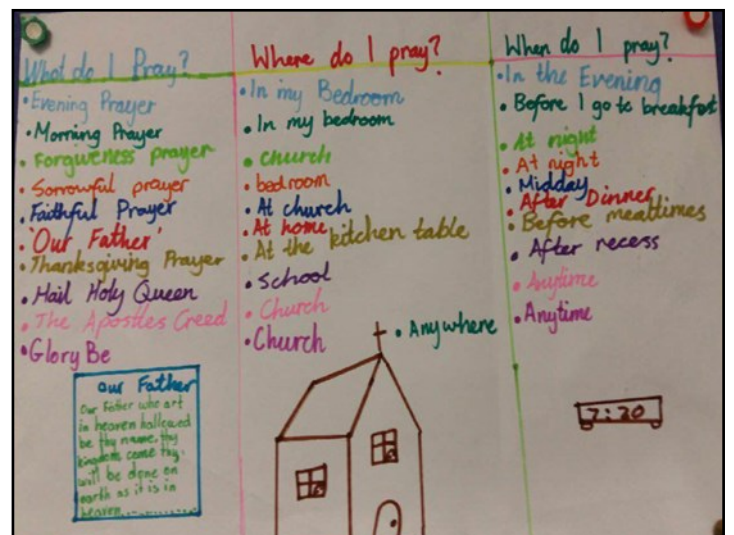 What do I Pray?
• Evening Prayer
• Morning Prayer
• Forgiveness prayer
• Sorrowful prayer
• Faithful Prayer
• 'Our Father'
• Thanksgiving Prayer
• Hail Holy Queen
• The Apostles Creed
• Glory Be
Our Father
Our Father who art
in heaven hallowed
be thy name, thy
kingdom come thy
will be done on
earth as it is in
heaven..............
Where do I pray?
• In my Bedroom
• In my bedroom
• church
• bedroom
• At church
• At home
• At the kitchen table
• school
• Church
• Church
• Anywhere
When do I pray?
• In the Evening
• Before I go to breakfast
• At night
• At night
• Midday
• After Dinner
• Before mealtimes
• After recess
• Anytime
• Anytime
7:20